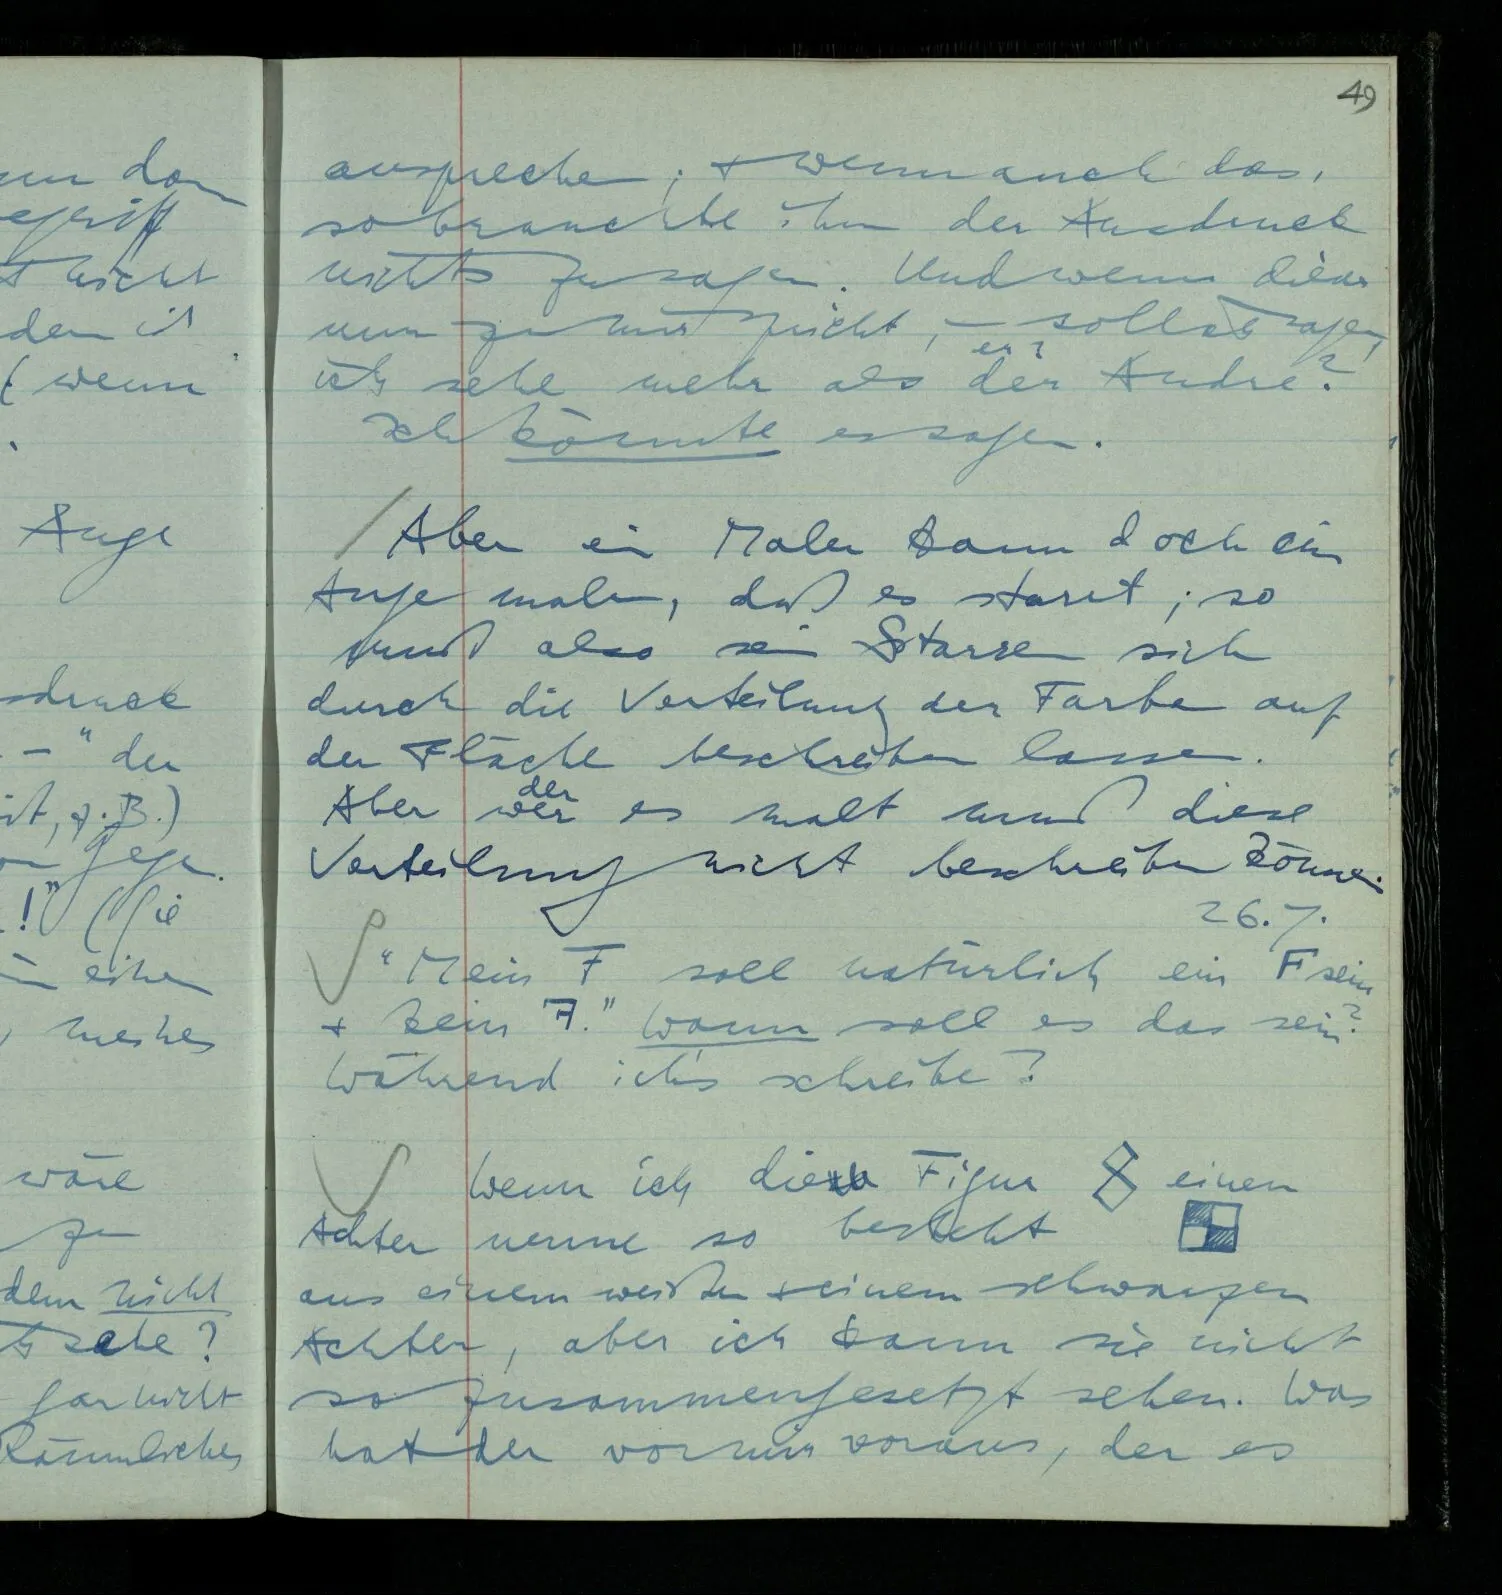 49
nun dan
egriff
t nicht
dem is
( wenn
Auge
sdruck
– " der
it, z.B.)
gege
!" (Sie
in einen
, meines
wäre
zu
dem nicht
sehe?
gar nicht
Räumliches
aussprechen; + wenn auch das,
so brauchte ihm der Ausdruck
nichts zu sagen. Und wenn dieser
nun zu mir spricht, – soll ich sagen,
ich sehe mehr als der Andre?
er?
Ich könnte es sagen.
Aber ein Maler kann doch ein
Auge malen, daß es starrt; so
muß also sein Starren sich
durch die Verteilung der Farbe auf
der Fläche beschreiben lassen.
der
Aber wer es malt muß diese
Verteilung nicht beschreiben können.
26.7.
"Mein F soll natürlich ein F sein
+ kein 7." Wann soll es das sein?
Während ich's schreibe?
Wenn ich diese Figur 8 einen
Achter nenne so besteht
aus einem weißen + einem schwarzen
Achter, aber ich kann sie nicht
so zusammengesetzt sehen. Was
hat der vor mir voraus, der es